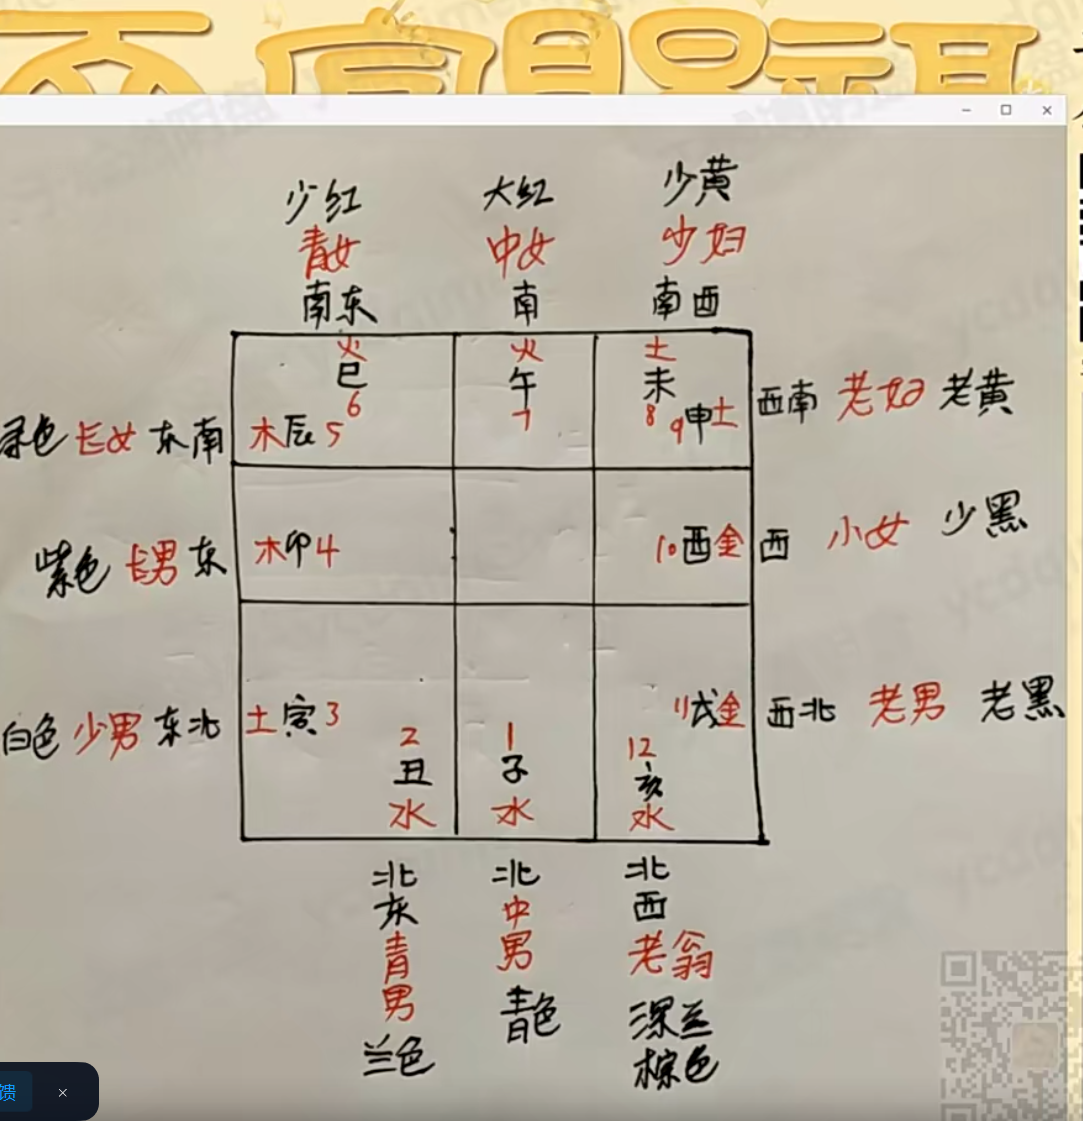 少红 大红 少黄
青女 中女 少妇
南东 南 南西
火 火 土
巳 午 未
6 7 8 9申土 西南 老妇 老黄
绿色 长女 东南 木辰5
紫色 长男 东 木卯4 10酉金 西 小女 少黑
白色 少男 东北 土寅3 11戌金 西北 老男 老黑
2 1 12
丑 子 亥
水 水 水
北 北 北
东 中 西
青 男 老翁
男 青色 深兰
兰色 棕色
馈